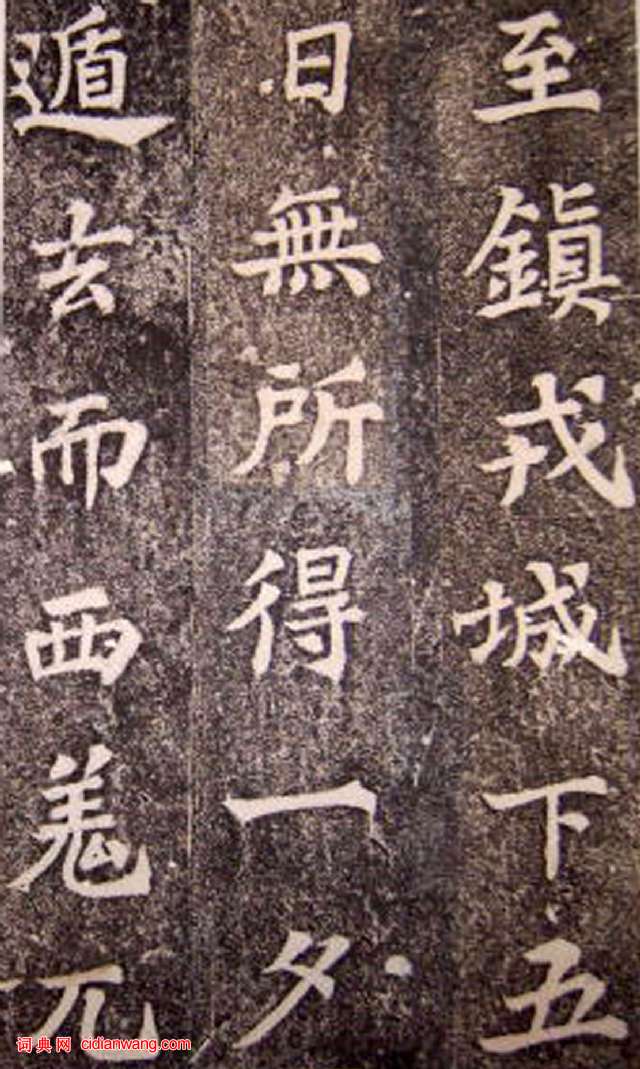 至鎮戎城下五
日無所得一夕
遁去而西羌兀
词典网 cidianwang.com